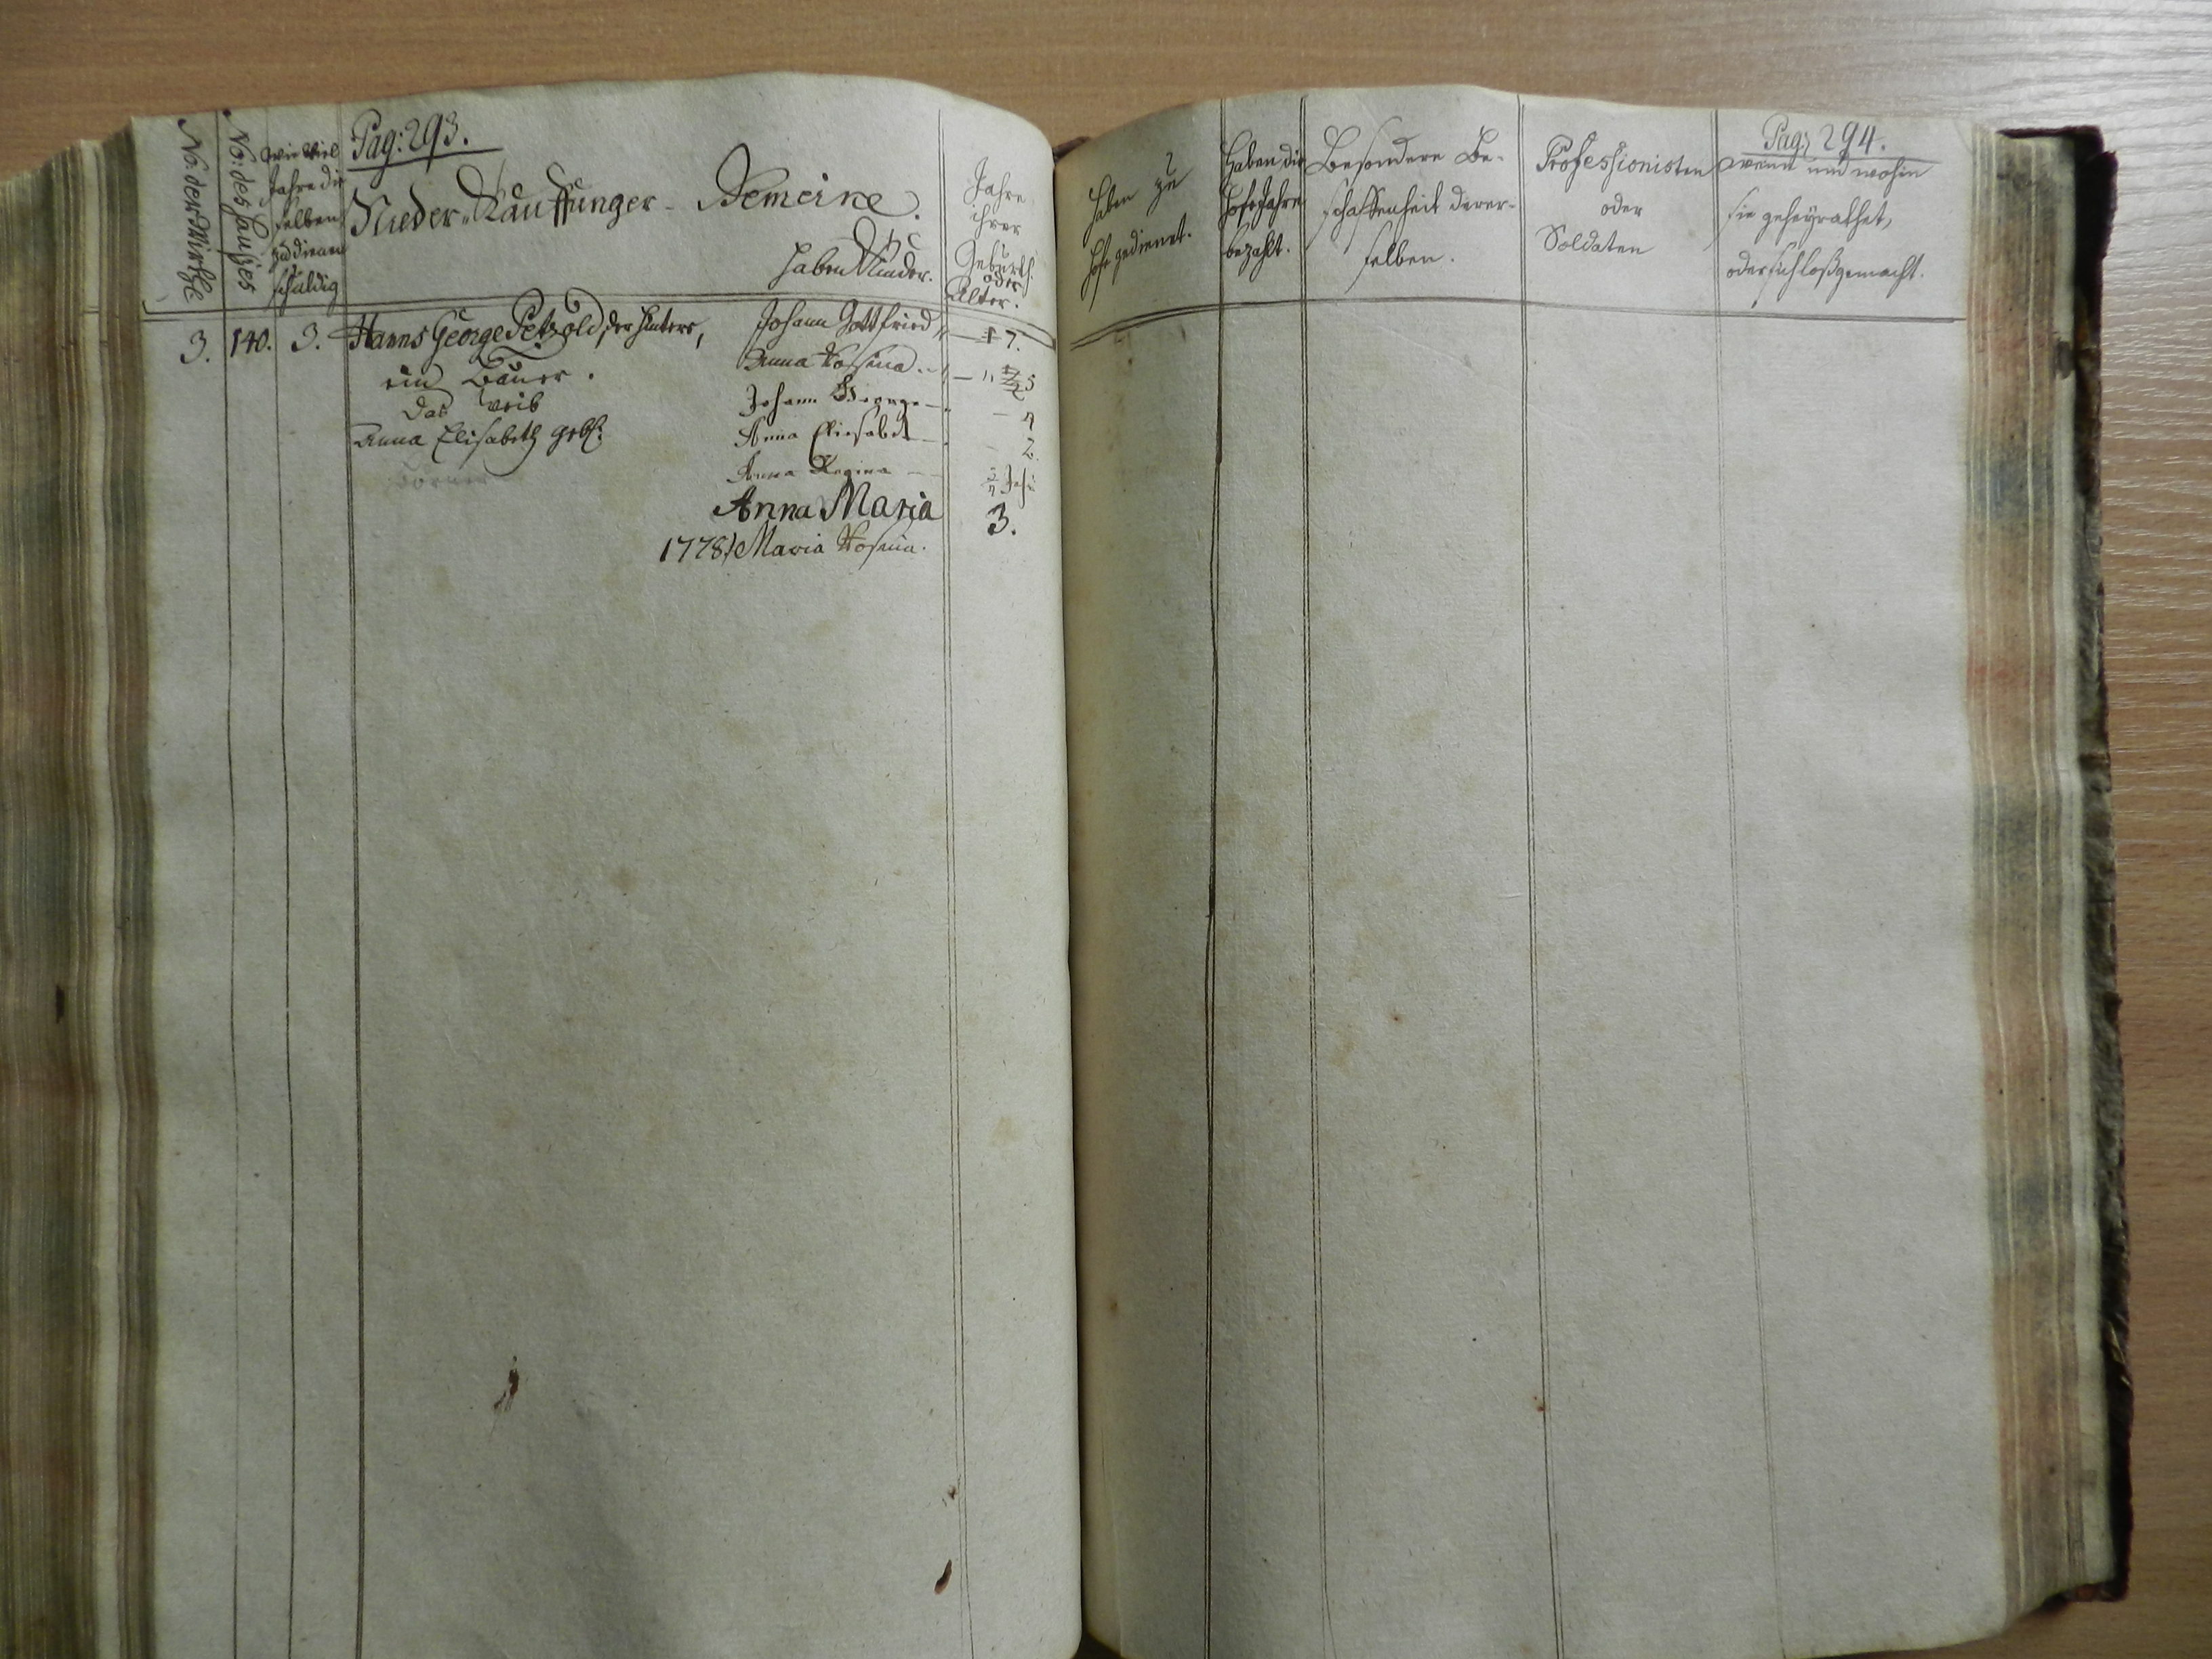 Pag: 293.
No: der Wirthe
No: des Hauses
wie viel
Jahre die
selben
zu dienen
schuldig
Nieder-Kauffunger-Gemeine.
haben Kinder.
Jahre
ihrer
Geburth
oder
Alter.
3. 140. 3. Hanns George Petzold, der hintere, Johann Gottfried 17.
ein Bauer. Anna Rosina 5
das Weib Johann George 4
Anna Elisabeth gebh: Anna Eliesabet 2.
Anna Regina
Anna Maria 3.
1778) Maria Rosina.
haben zu
Hofe gedienet.
haben die
Hofe Jahre
bezahlt.
Besondere Be-
schaffenheit derer-
selben.
Professionisten
oder
Soldaten
Pag: 294.
wenn und wohin
sie geheyrathet,
oder sich loßgemacht.